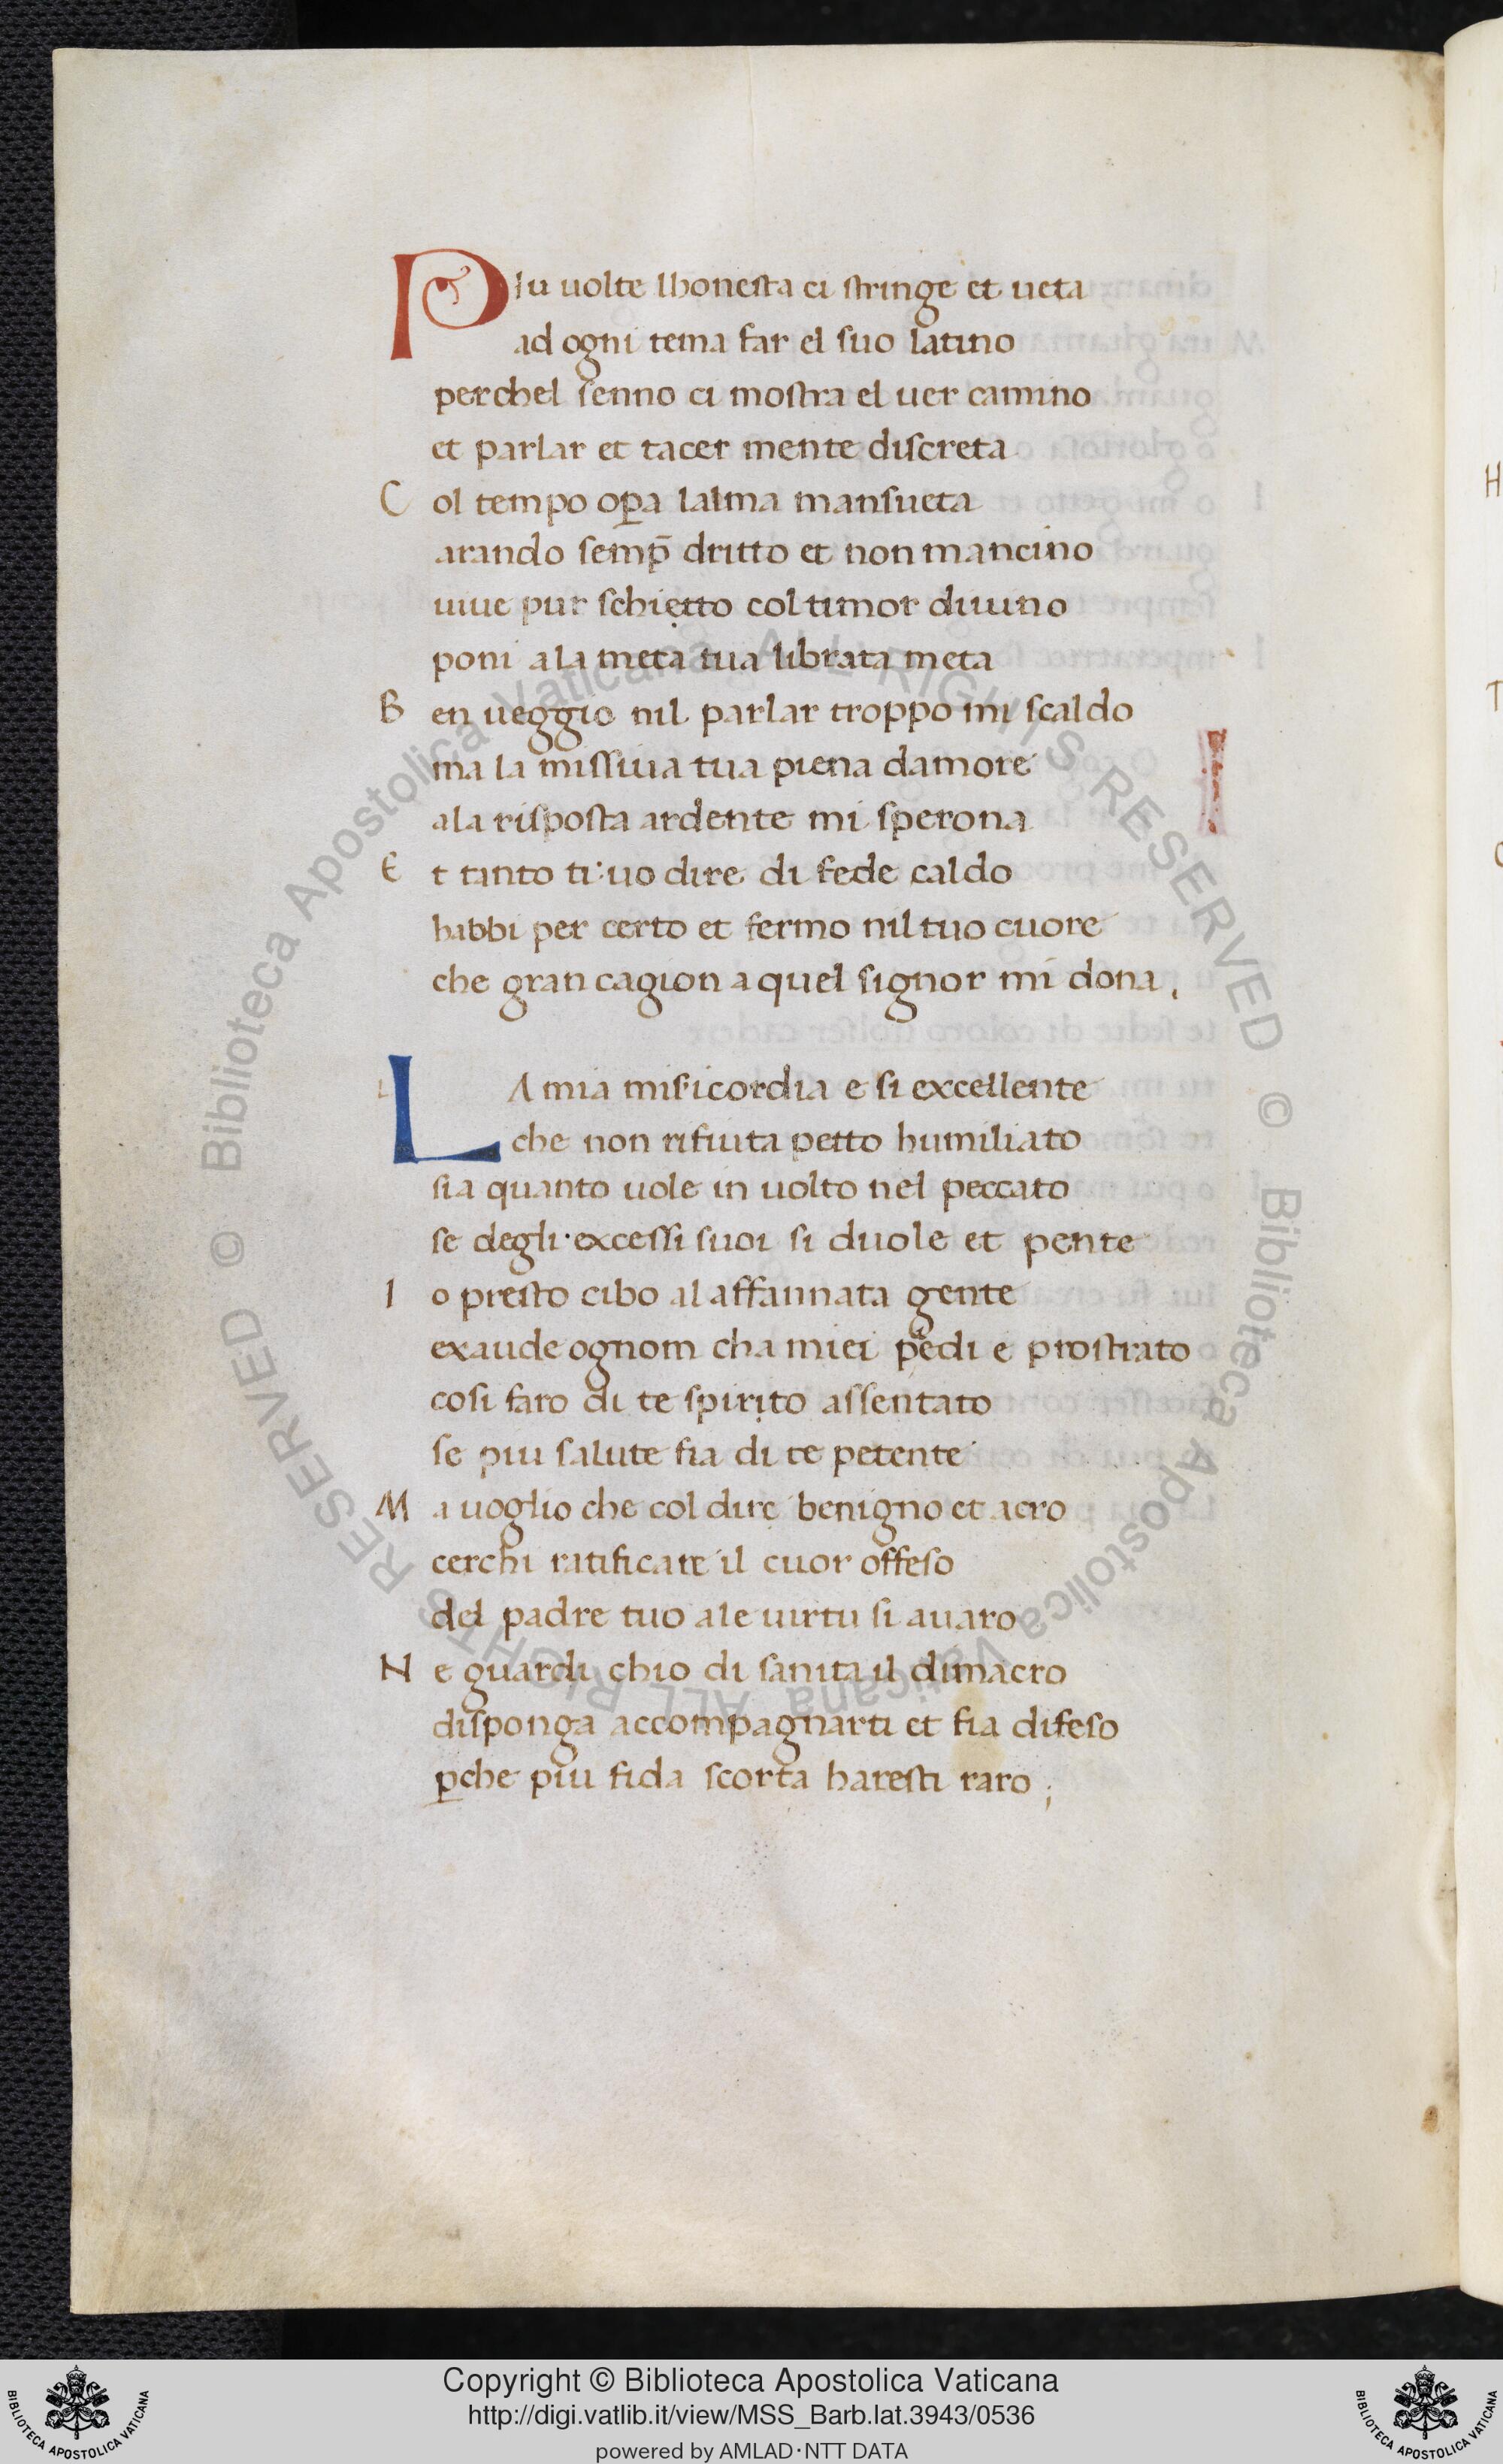 Piu uolte lhonesta ci stringe et ueta
ad ogni tema far el suo latino
perchel senno ci mostra el uer camino
et parlar et tacer mente discreta
C ol tempo opa lalma mansueta
arando semp̄ dritto et non mancino
uiue pur schietto col timor diuino
poni ala meta tua librata meta
B en ueggio nil parlar troppo mi scaldo
ma la missiua tua piena damore
ala risposta ardente mi sperona
E t tanto ti uo dire di fede caldo
habbi per certo et fermo nil tuo cuore
che gran cagion a quel signor mi dona
LA mia misicordia e si excellente
che non rifiuta petto humiliato
sia quanto uole in uolto nel peccato
se degli excessi suoi si duole et pente
I o presto cibo al affannata gente
exaude ognom cha miei pedi e prostrato
cosi faro di te spirito assentato
se piu salute fia di te petente
M a uoglio che col dire benigno et acro
cerchi ratificare il cuor offeso
del padre tuo ale uirtu si auaro
N e guardi chio di sanita il dimacro
disponga accompagnarti et fia difeso
pche piu fida scorta haresti raro ;
Copyright © Biblioteca Apostolica Vaticana
http://digi.vatlib.it/view/MSS_Barb.lat.3943/0536
powered by AMLAD·NTT DATA
BIBLIOTECA APOSTOLICA VATICANA
BIBLIOTECA APOSTOLICA VATICANA
© Biblioteca Apostolica Vaticana ALL RIGHTS RESERVED © Biblioteca Apostolica Vaticana ALL RIGHTS RESERVED